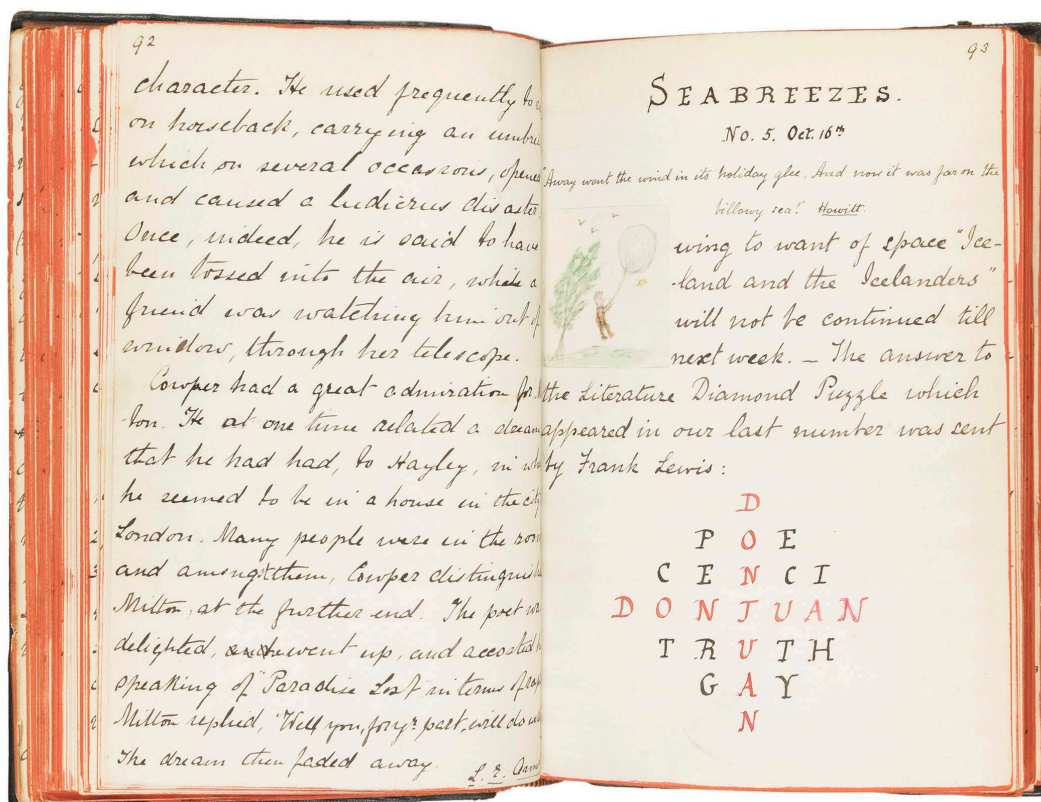 92
character. He used frequently to
on horseback, carrying an
which on several occasions,
and caused a ludicrus
Once, indeed, he is said to have
been tossed into the air, while a
friend was watching him out of
window, through her telescope.
Cowper had a great admiration for
-ton. He at one time related a dream
that he had had, to Hayley, in
he seemed to be in a house in the city
London. Many people were in the
and amongst them, Cowper
Milton, at the further end. The poet
delighted, went up, and accosted
speaking of "Paradise Lost" in terms of
Milton replied, "Well you, for yr part, will do
The dream then faded away.
L. E.
93
SEABREEZES.
No. 5. Oct. 16th
"Away went the wind in its holiday glee, And now it was far on the
billowy sea! Howitt.
wing to want of space "Ice-
-land and the Icelanders"
will not be continued till
next week. – The answer to
the Literature Diamond Puzzle which
appeared in our last number was sent
by Frank Lewis:
D
P O E
C E N C I
D O N J U A N
T R U T H
G A Y
N